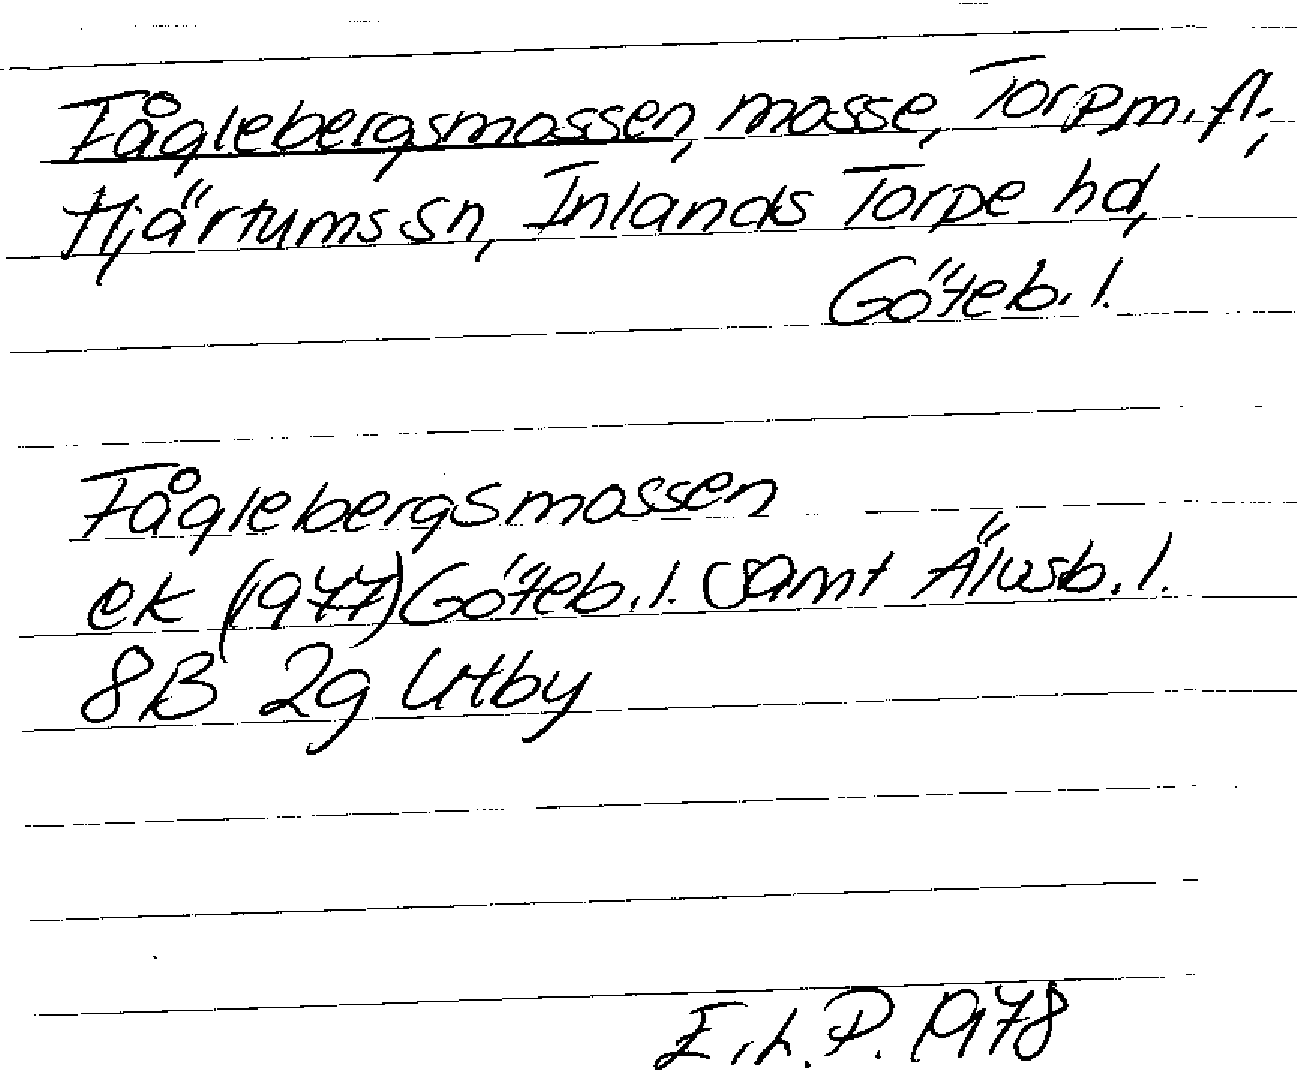 Fåglebergsmossen, mosse, Torp m. fl.,
Hjärtums sn, Inlands Torpe hd,
Göteb. l.
Fåglebergsmossen
ek (1977) Göteb. l. samt Älvsb. l.
8B 2g Utby
E. L. P. 1978